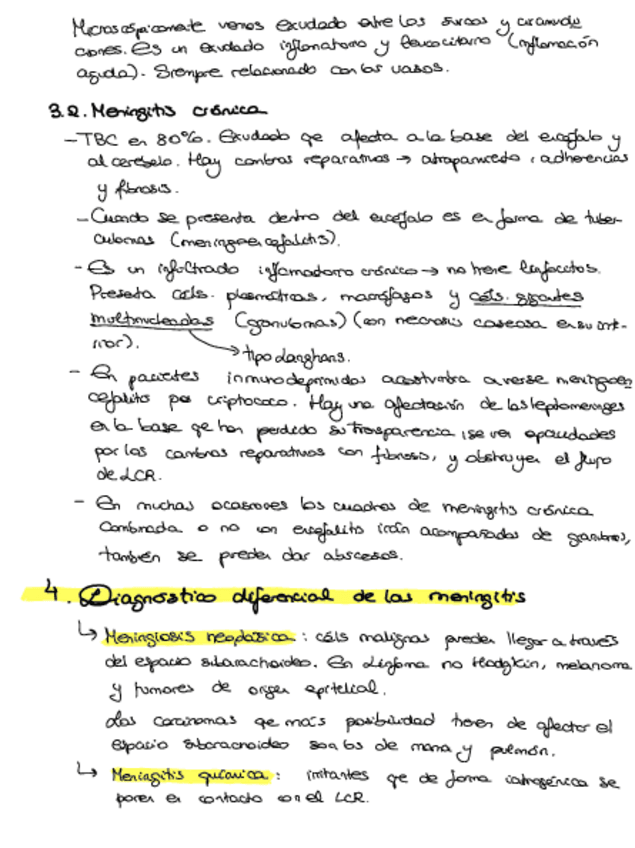 Microscópicamente vemos exudado entre los surcos y circunvolu
ciones. Es un exudado inflamatorio y leucocitario (inflamación
aguda). Siempre relacionado con los vasos.
3.2. Meningitis crónica
- TBC en 80%. Exudado qe afecta a la base del encéfalo y
al cerebelo. Hay cambios reparativos → atrapamiento, adherencias
y fibrosis.
- Cuando se presenta dentro del encéfalo es en forma de tuber-
culomas (meningoencefalitis).
- Es un infiltrado inflamatorio crónico → no tiene linfocitos.
Presenta céls. plasmáticas, macrófagos y céls. gigantes
multinucleadas (granulomas) (con necrosis caseosa en su int-
rior).
→ tipo Langhans.
- En pacientes inmunodeprimidos acostumbra a verse meningoen
cefalitis por criptococo. Hay una afectación de las leptomeninges
en la base qe han perdido su transparencia, se ven opacidades
por los cambios reparativos con fibrosis, y obstruyen el flujo
de LCR.
- En muchas ocasiones los cuadros de meningitis crónica
combinada o no con encefalitis irán acompañados de gambres,
también se pueden dar abscesos.
4. Diagnóstico diferencial de las meningitis
↳ Meningiosis neoplásica: céls malignas pueden llegar a través
del espacio subaracnoideo. En Linfoma no Hodgkin, melanoma
y tumores de origen epitelial.
Los carcinomas qe más posibilidad tienen de afectar el
espacio subaracnoideo son los de mama y pulmón.
↳ Meningitis química: irritantes qe de forma iatrogénica se
ponen en contacto con el LCR.